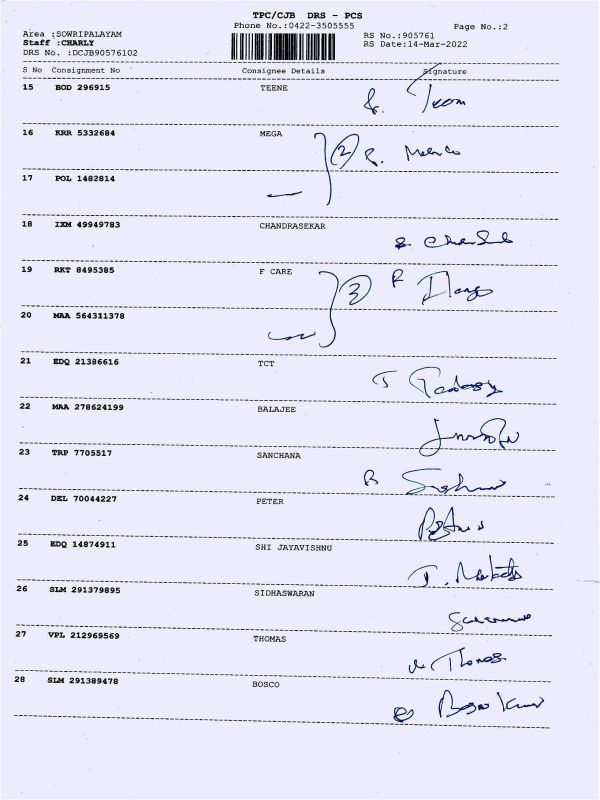 TPC/CJB DRS - PCS
Phone No.:0422-3505555 Page No.:2
Area :SOWRIPALAYAM RS No.:905761
Staff :CHARLY RS Date:14-Mar-2022
DRS No. :DCJB90576102
S No Consignment No Consignee Details Signature
15 BOD 296915 TEENE
16 KRR 5332684 MEGA 2
17 POL 1482814
18 IXM 49949783 CHANDRASEKAR
19 RKT 8495385 F CARE
20 MAA 564311378
21 EDQ 21386616 TCT
22 MAA 278624199 BALAJEE
23 TRP 7705517 SANCHANA
24 DEL 70044227 PETER
25 EDQ 14874911 SHI JAYAVISHNU
26 SLM 291379895 SIDHASWARAN
27 VPL 212969569 THOMAS Thomas
28 SLM 291389478 BOSCO